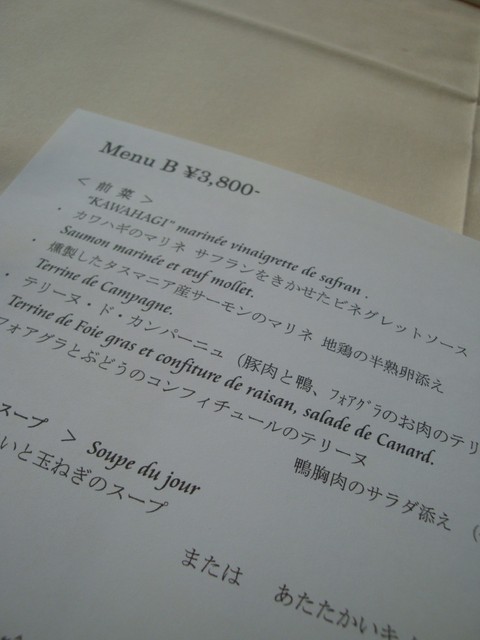 Menu B ¥3,800-
＜ 前 菜 ＞
"KAWAHAGI" marinée vinaigrette de safran .
・ カワハギのマリネ サフランをきかせたビネグレットソース
Saumon marinée et œuf mollet.
・ 燻製したタスマニア産サーモンのマリネ 地鶏の半熟卵添え
Terrine de Campagne.
・ テリーヌ・ド・カンパーニュ （豚肉と鴨、ﾌｫｱｸﾞﾗのお肉のテリ
Terrine de Foie gras et confiture de raisan, salade de Canard.
フォアグラとぶどうのコンフィチュールのテリーヌ
鴨胸肉のサラダ添え （
スープ ＞ Soupe du jour
いと玉ねぎのスープ
または あたたかい